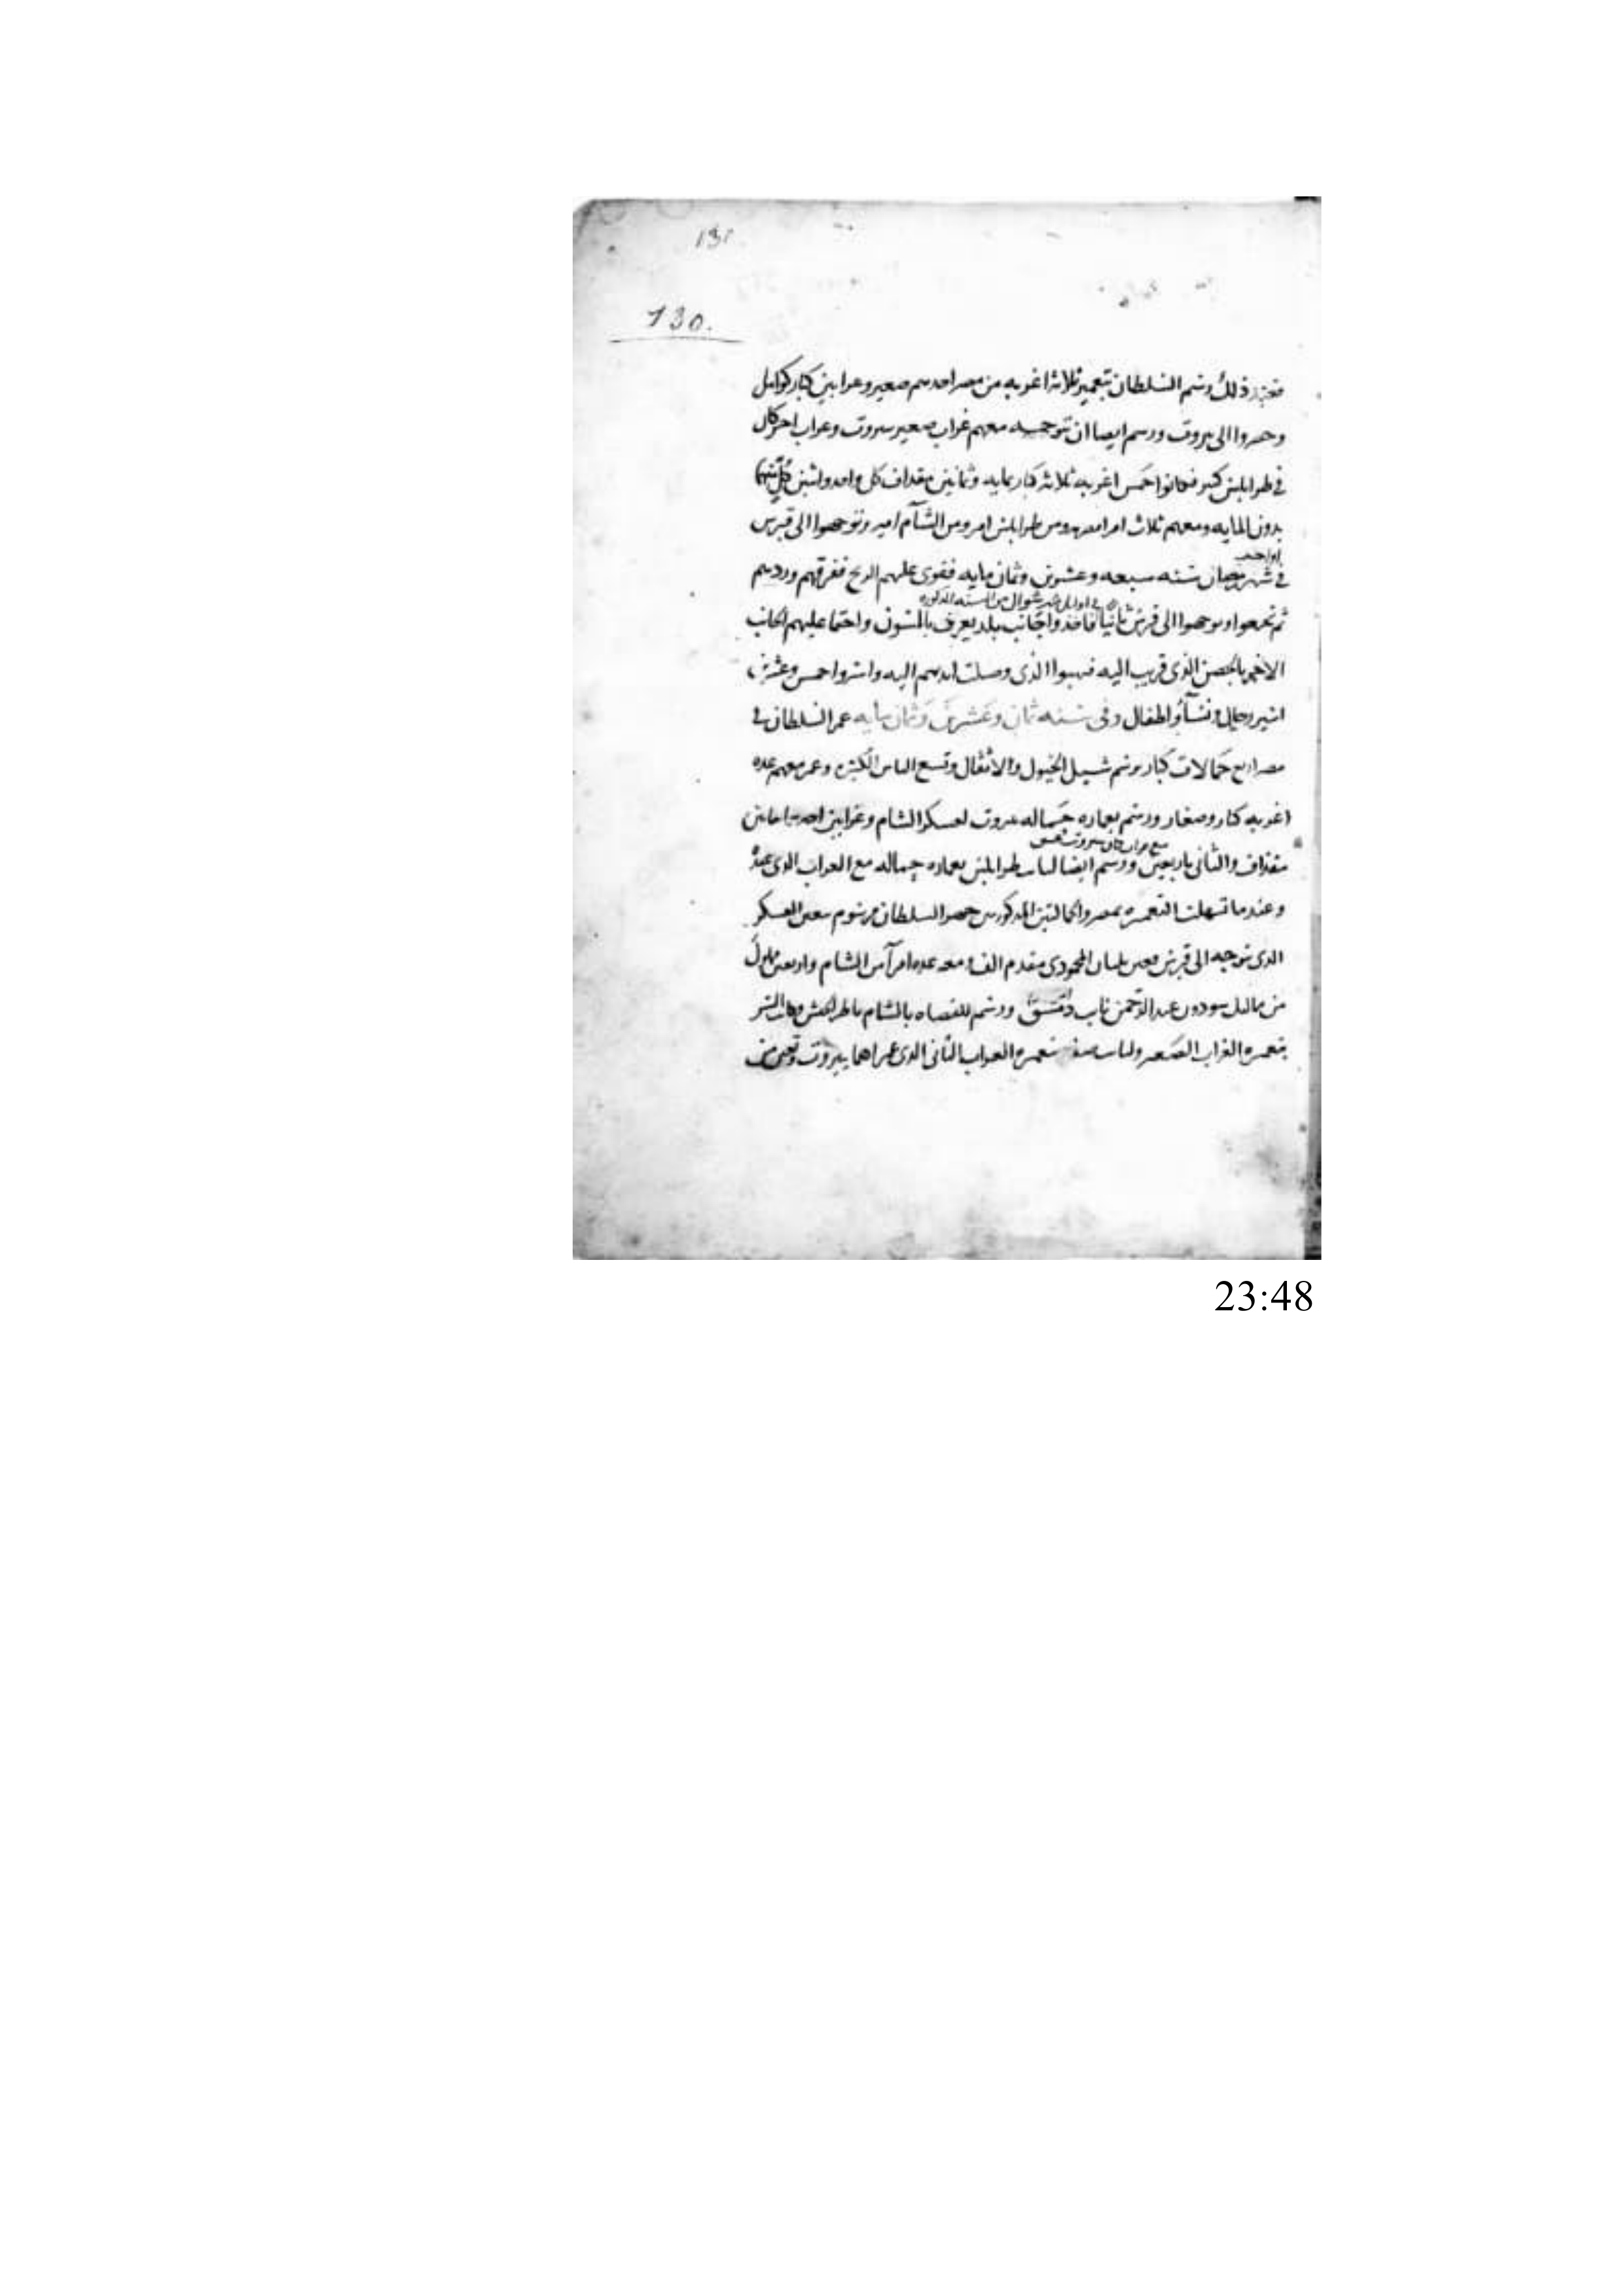 131
130.
فعند ذلك رسم السلطان بتعمير ثلاثة اغربه من مصر احدهم صغير وغرابين كبار كوامل
وحضروا الى بيروت ورسم ايضا ان تتوجه معهم غراب صغير بيروت وغراب اخر كان
في طرابلس كبير فكانوا خمس اغربه ثلاثه كبار بمايه وثمانين مقداف كل واحد واثنين كل منهما
بدون المايه ومعهم ثلاث امرا ومن طرابلس امير ومن الشآم امير وتوجهوا الى قبرس
اواخر
في شهر رمضان سنه سبعه وعشرين وثمان مايه فقوى عليهم الريح ففرقهم وردهم
في اوايل شهر شوال من السنه المذكوره
ثم تجمعوا وتوجهوا الى قبرس ثانيا فاخذوا جانب بلد يعرف بالمسون واحتما عليهم الجانب
الاخر بالحصن الذي قريب اليه فنهبوا الذى وصلت ايديهم اليه واسروا خمس وعشرين
اسير رجال ونسآ واطفال وفي سنه ثمان وعشرين وثمان مايه عمر السلطان في
مصر اربع حمالات كبار برسم شيل الخيول والاثقال وتسع الناس الكثيره وعمر معهم عده
اغربه كبار وصغار ورسم بعماره حماله ببيروت لعسكر الشام وغرابين احدهما
مع غراب كان ببيروت
مقداف والثانى باربعين ورسم ايضا لنايب طرابلس بعماره حماله مع الغراب الذى عنده
وعندما تسهلت التعميره بمصر والحمالتين المذكورين حضر السلطان مرسوم بتعين العسكر
الذى توجه الى قبرس فعين بلبان المحمودى مقدم الف ومعه عده امرآ من الشام واربعين مملوك
من مماليك سودون عبد الرحمن نايب دمشق ورسم للقضاه بالشام
بتعميره الغراب الصغير ولنايب صفد بتعميره الغراب الثانى الذى عمراهما ببيروت وتعين من
23:48